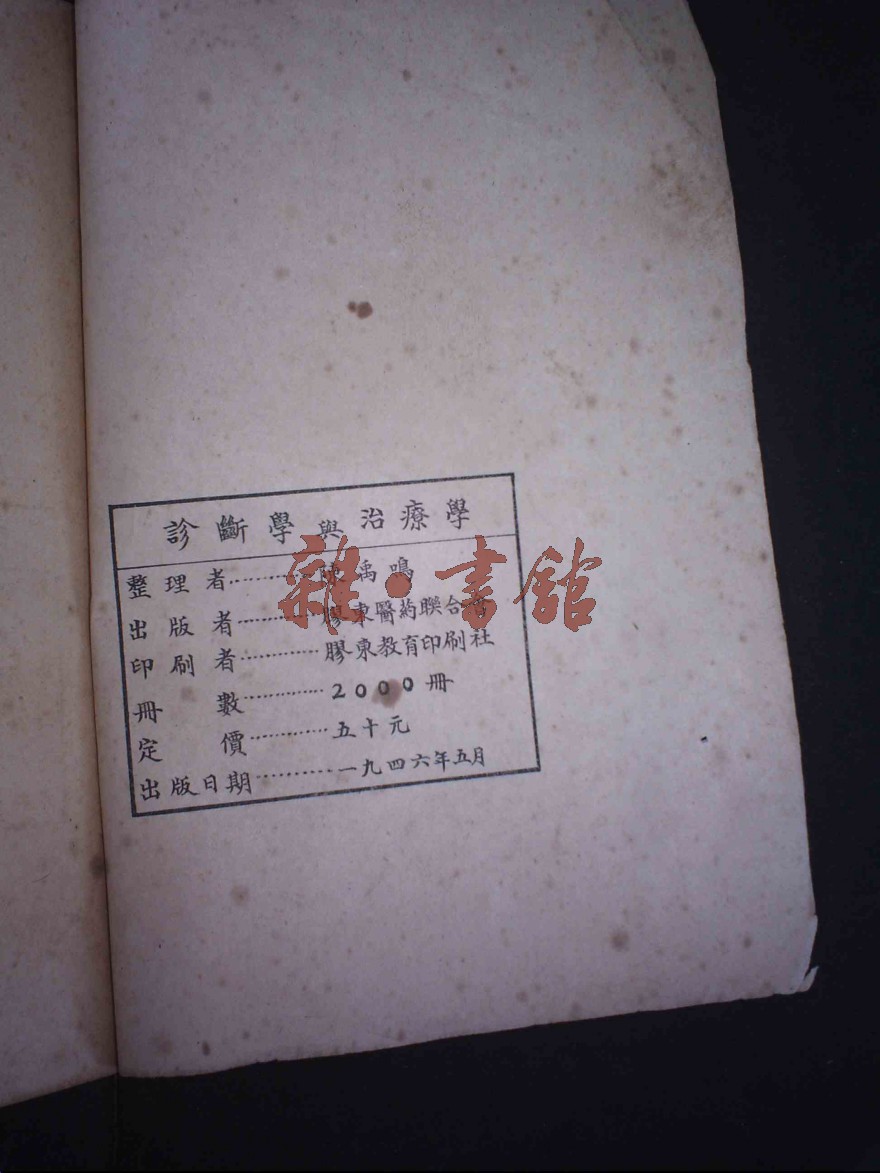 診斷學與治療學
整理者…………陳禹鳴
出版者…………膠東醫药聯合會
印刷者…………膠東教育印刷社
冊數…………2000冊
定價…………五十元
出版日期…………一九四六年五月
雜·書館